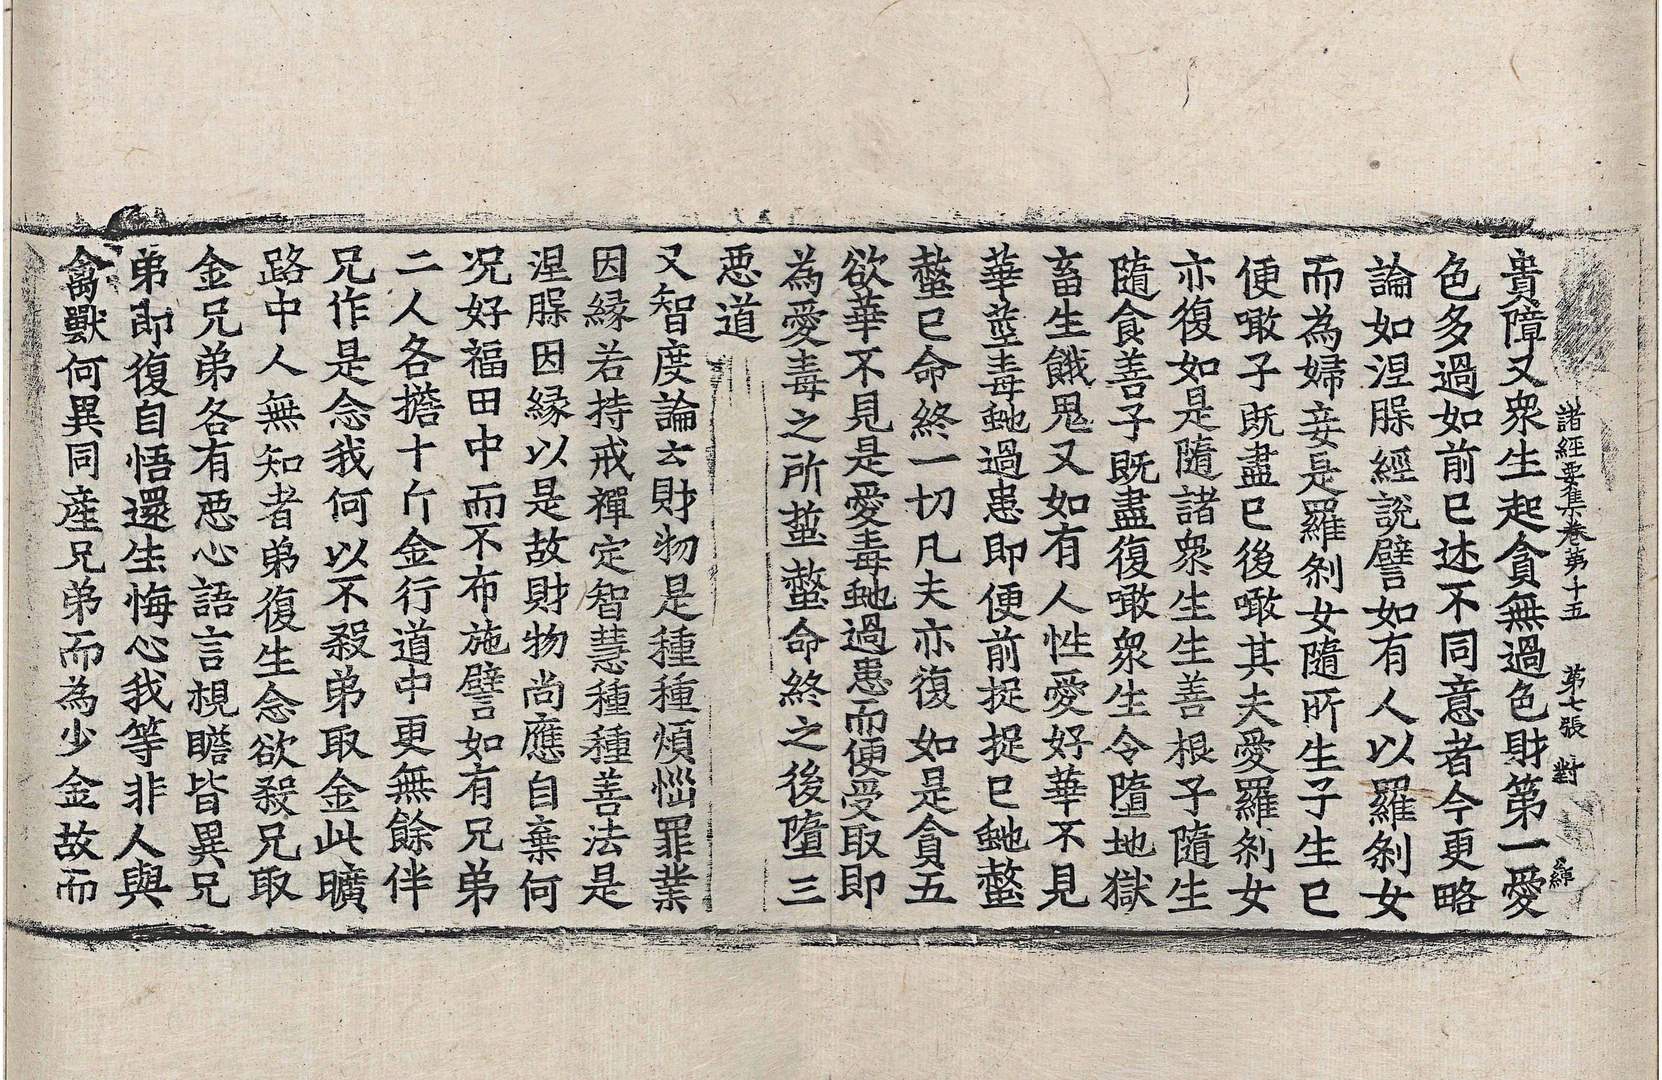 諸經要集卷第十五 第七張 對
貴障又衆生起貪無過色財第一愛
色多過如前已述不同意者今更略
論如涅槃經說譬如有人以羅剎女
而為婦妾是羅剎女隨所生子生已
便噉子既盡已後噉其夫愛羅剎女
亦復如是隨諸衆生生善根子隨生
隨食善子既盡復噉衆生令墮地獄
畜生餓鬼又如有人性愛好華不見
華莖毒虵過患即便前捉捉已虵螫
螫已命終一切凡夫亦復如是貪五
欲華不見是愛毒虵過患而便受取即
為愛毒之所蜇螫命終之後墮三
惡道
又智度論云財物是種種煩惱罪業
因緣若持戒禪定智慧種種善法是
涅槃因緣以是故財物尚應自棄何
况好福田中而不布施譬如有兄弟
二人各擔十斤金行道中更無餘伴
兄作是念我何以不殺弟取金此曠
路中人無知者弟復生念欲殺兄取
金兄弟各有惡心語言視瞻皆異兄
弟即復自悟還生悔心我等非人與
禽獸何異同產兄弟而為少金故而